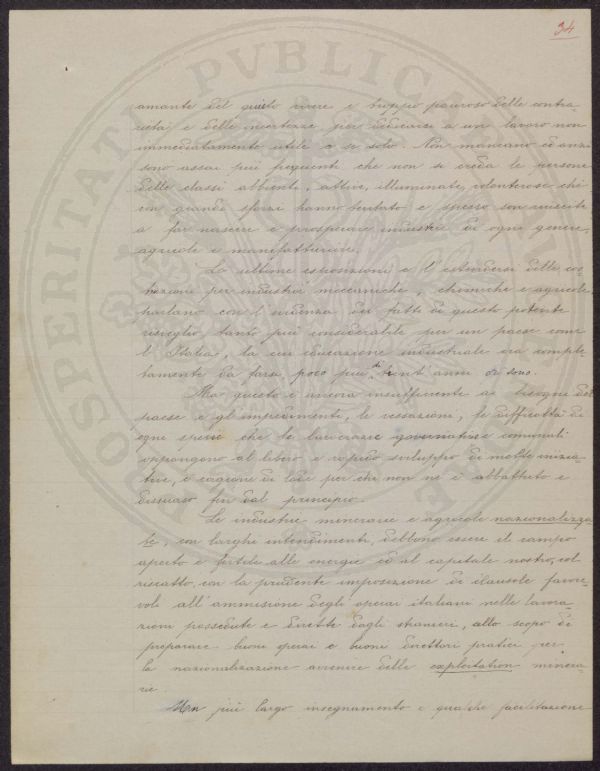 34
amante del quieto vivere e troppo pauroso delle contra-
rietà e delle incertezze, per dedicarsi a un lavoro non
immediatamente utile a se solo. Non mancano ed anzi
sono assai più frequenti che non si creda le persone
delle classi abbienti, attive, illuminate, volonterose che
con grandi sforzi hanno tentato e spesso son riuscite
a far nascere e prosperare industrie di ogni genere,
agricole e manifatturiere.
Le ultime esposizioni e l'estendersi delle co-
struzioni per industrie meccaniche, chimiche e agricole,
parlano con l'evidenza dei fatti di questo potente
risveglio, tanto più considerabile per un paese come
l'Italia, la cui educazione industriale era comple-
tamente da farsi, poco più di vent'anni or sono.
Ma questo è ancora insufficiente ai bisogni del
paese e gl'impedimenti, le vessazioni, le difficoltà di
ogni specie che le burocrazie governative e comunali
oppongono al libero e rapido sviluppo di molte inizia-
tive, è cagione di lode per chi non ne è abbattuto e
dissuaso fin dal principio.
Le industrie minerarie e agricole nazionalizza-
te, con larghi intendimenti, debbono essere il campo
aperto e fertile alle energie ed al capitale nostro, col
riscatto, con la prudente imposizione di clausole favore-
voli all'ammisione degli operai italiani nelle lavora-
zioni possedute e dirette dagli stranieri, allo scopo di
preparare buoni operai e buoni direttori pratici per
la nazionalizzazione avvenire delle exploitation minera-
rie.
Un più largo insegnamento e qualche facilitazione
PROSPERITATI PVBLICAE